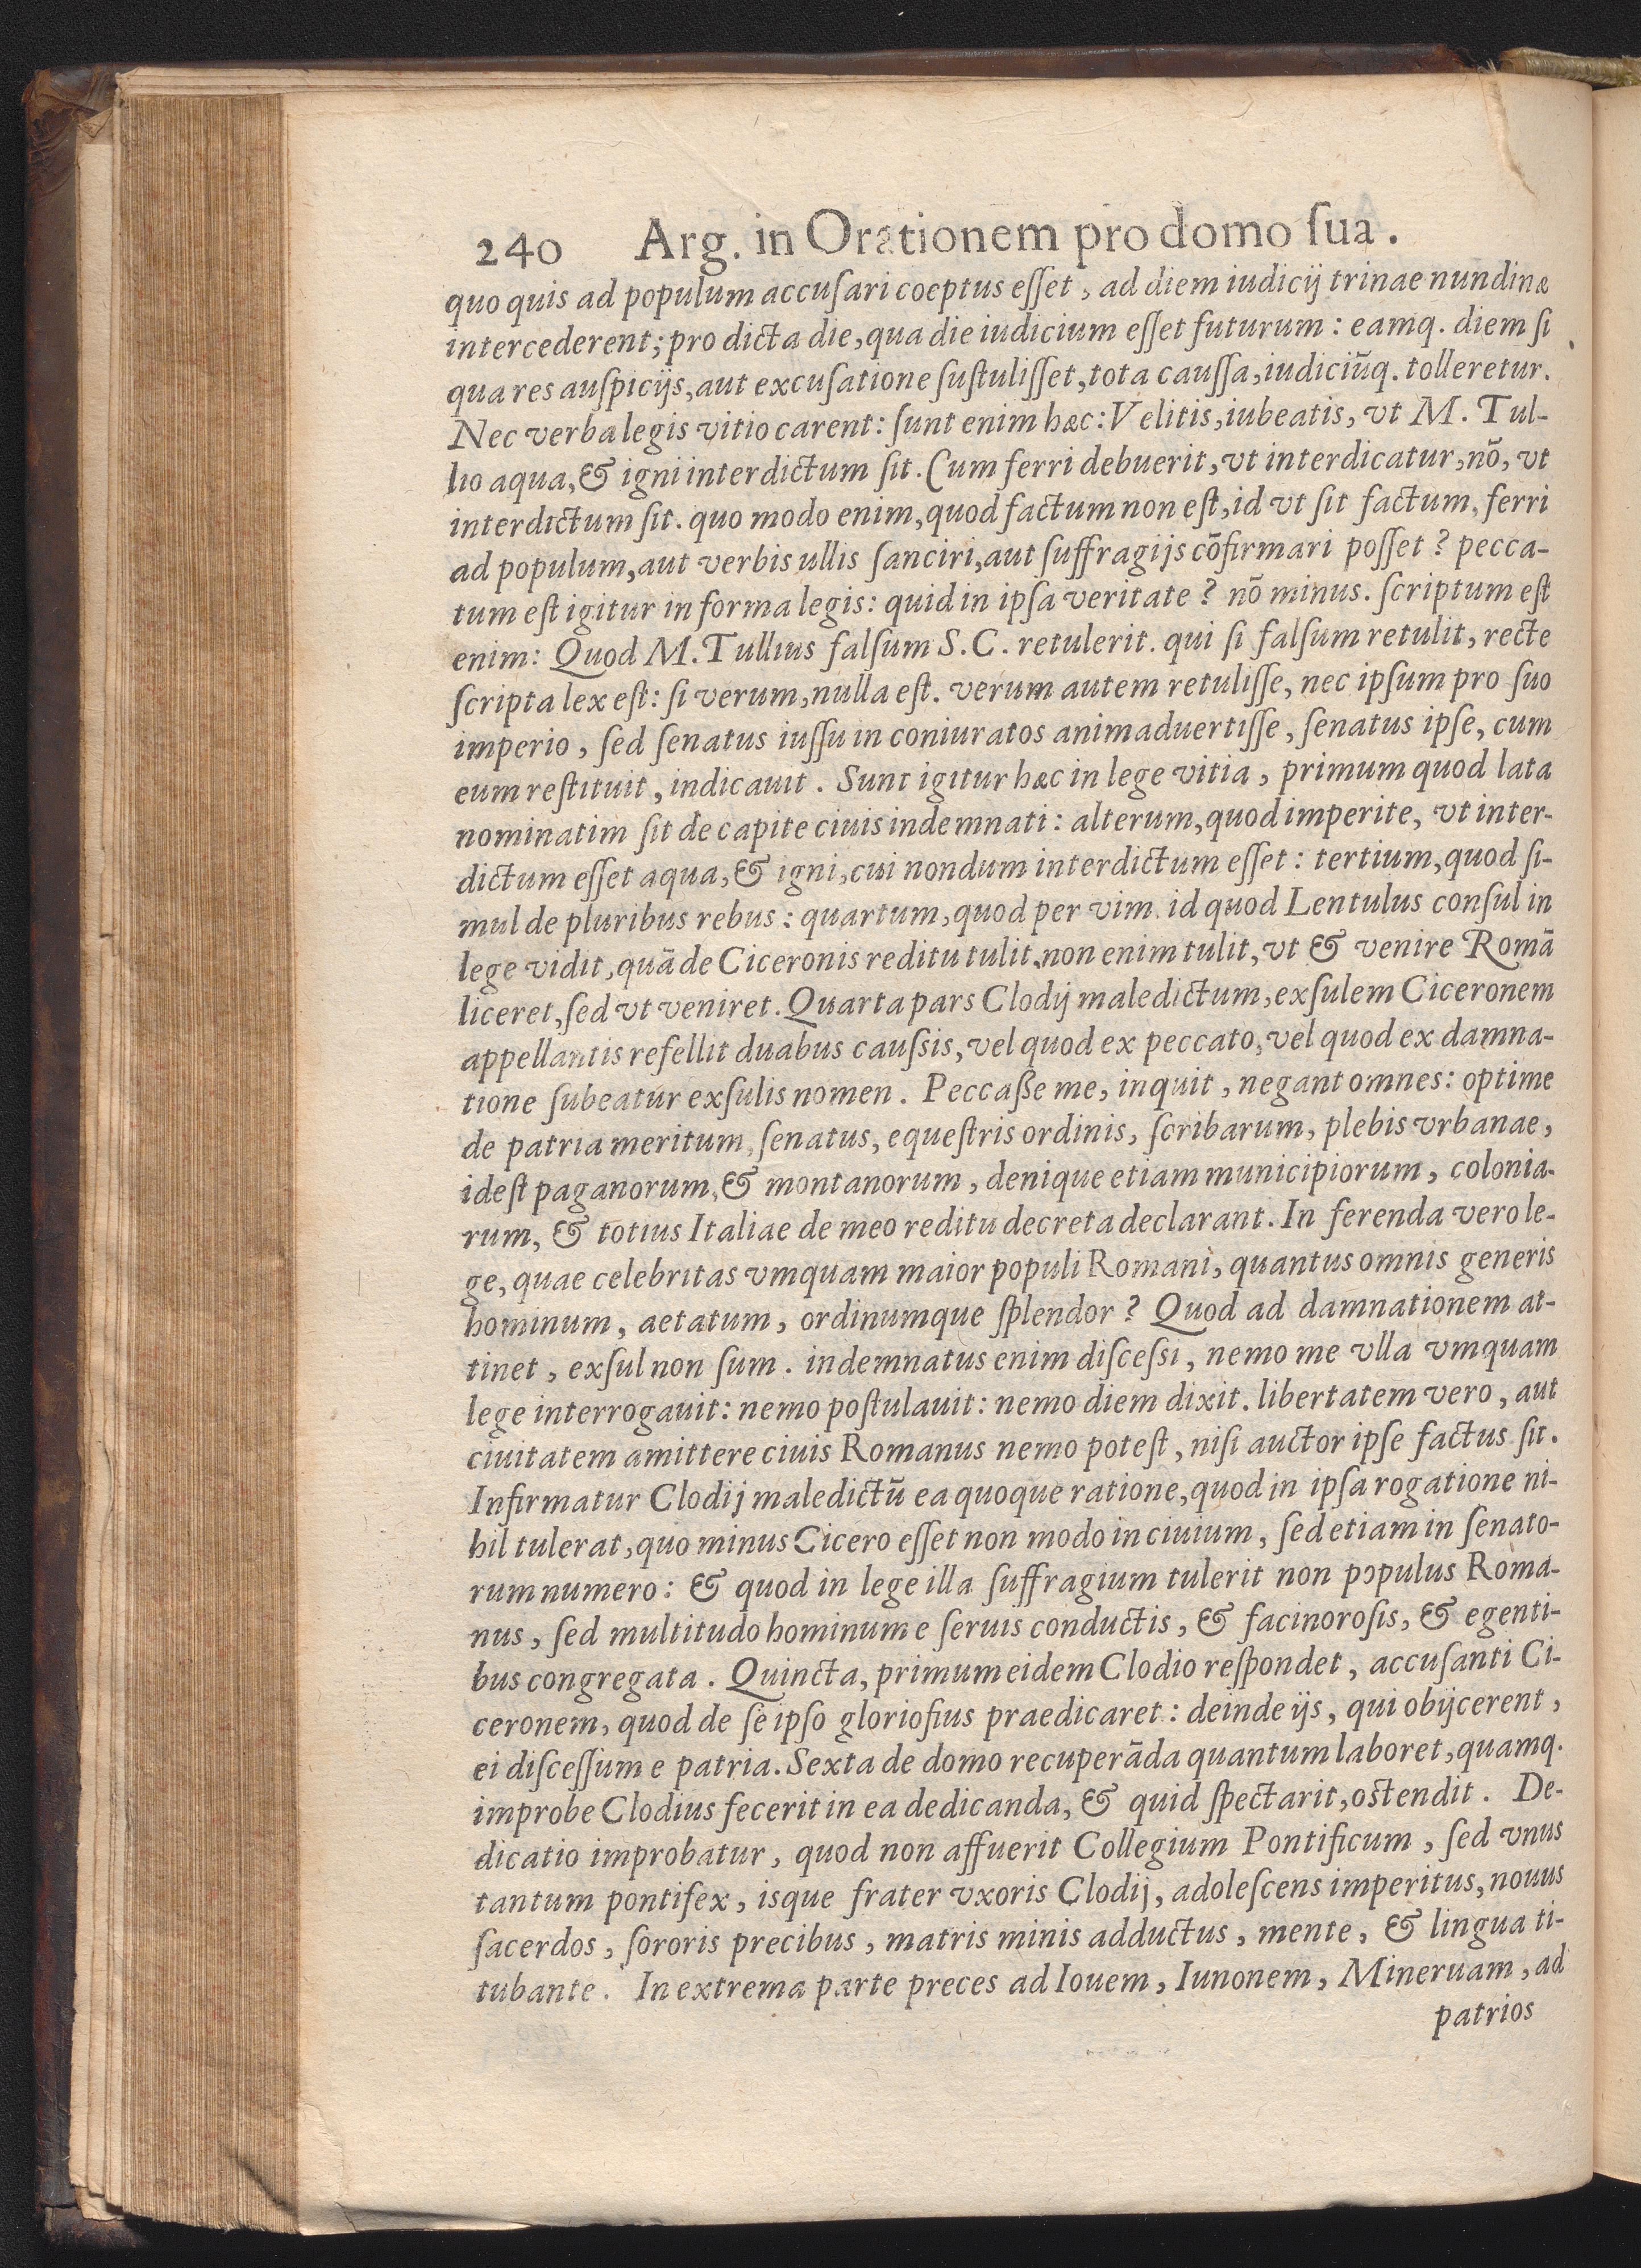 240 Arg. in Orationem pro domo ſua.
quo quis ad populum accuſari coeptus eſſet, ad diem iudicij trinae nundinæ
intercederent; pro dicta die, qua die iudicium eſſet futurum: eamq. diem ſi
qua res auſpicijs, aut excuſatione ſuſtuliſſet, tota cauſſa, iudiciūq. tolleretur.
Nec verba legis vitio carent: ſunt enim hæc: Velitis, iubeatis, vt M. Tul-
lio aqua, & igni interdictum ſit. Cum ferri debuerit, vt interdicatur, nō, vt
interdictum ſit. quo modo enim, quod factum non eſt, id vt ſit factum, ferri
ad populum, aut verbis ullis ſanciri, aut ſuffragijs cōfirmari poſſet? pecca-
tum eſt igitur in forma legis: quid in ipſa veritate? nō minus. ſcriptum eſt
enim: Quod M. Tullius falſum S. C. retulerit. qui ſi falſum retulit, recte
ſcripta lex eſt: ſi verum, nulla eſt. verum autem retuliſſe, nec ipſum pro ſuo
imperio, ſed ſenatus iuſſu in coniuratos animaduertiſſe, ſenatus ipſe, cum
eum reſtituit, indicauit. Sunt igitur hæc in lege vitia, primum quod lata
nominatim ſit de capite ciuis indemnati: alterum, quod imperite, vt inter-
dictum eſſet aqua, & igni, cui nondum interdictum eſſet: tertium, quod ſi-
mul de pluribus rebus: quartum, quod per vim. id quod Lentulus conſul in
lege vidit, quā de Ciceronis reditu tulit. non enim tulit, vt & venire Romā
liceret, ſed vt veniret. Quarta pars Clodij maledictum, exſulem Ciceronem
appellantis refellit duabus cauſsis, vel quod ex peccato, vel quod ex damna-
tione ſubeatur exſulis nomen. Peccaße me, inquit, negant omnes: optime
de patria meritum, ſenatus, equeſtris ordinis, ſcribarum, plebis vrbanae,
ideſt paganorum, & montanorum, denique etiam municipiorum, colonia-
rum, & totius Italiae de meo reditu decreta declarant. In ferenda vero le-
ge, quae celebritas vmquam maior populi Romani, quantus omnis generis
hominum, aetatum, ordinumque ſplendor? Quod ad damnationem at-
tinet, exſul non ſum. indemnatus enim diſceſsi, nemo me vlla vmquam
lege interrogauit: nemo poſtulauit: nemo diem dixit. libertatem vero, aut
ciuitatem amittere ciuis Romanus nemo poteſt, niſi auctor ipſe factus ſit.
Infirmatur Clodij maledictū ea quoque ratione, quod in ipſa rogatione ni-
hil tulerat, quo minus Cicero eſſet non modo in ciuium, ſed etiam in ſenato-
rum numero: & quod in lege illa ſuffragium tulerit non pɔpulus Roma-
nus, ſed multitudo hominum e ſeruis conductis, & facinoroſis, & egenti-
bus congregata. Quincta, primum eidem Clodio reſpondet, accuſanti Ci-
ceronem, quod de ſe ipſo glorioſius praedicaret: deinde ijs, qui obijcerent,
ei diſceſſum e patria. Sexta de domo recuperāda quantum laboret, quamq.
improbe Clodius fecerit in ea dedicanda, & quid ſpectarit, oſtendit. De-
dicatio improbatur, quod non affuerit Collegium Pontificum, ſed vnus
tantum pontifex, isque frater vxoris Clodij, adoleſcens imperitus, nouus
ſacerdos, ſororis precibus, matris minis adductus, mente, & lingua ti-
tubante. In extrema parte preces ad Iouem, Iunonem, Mineruam, ad
patrios